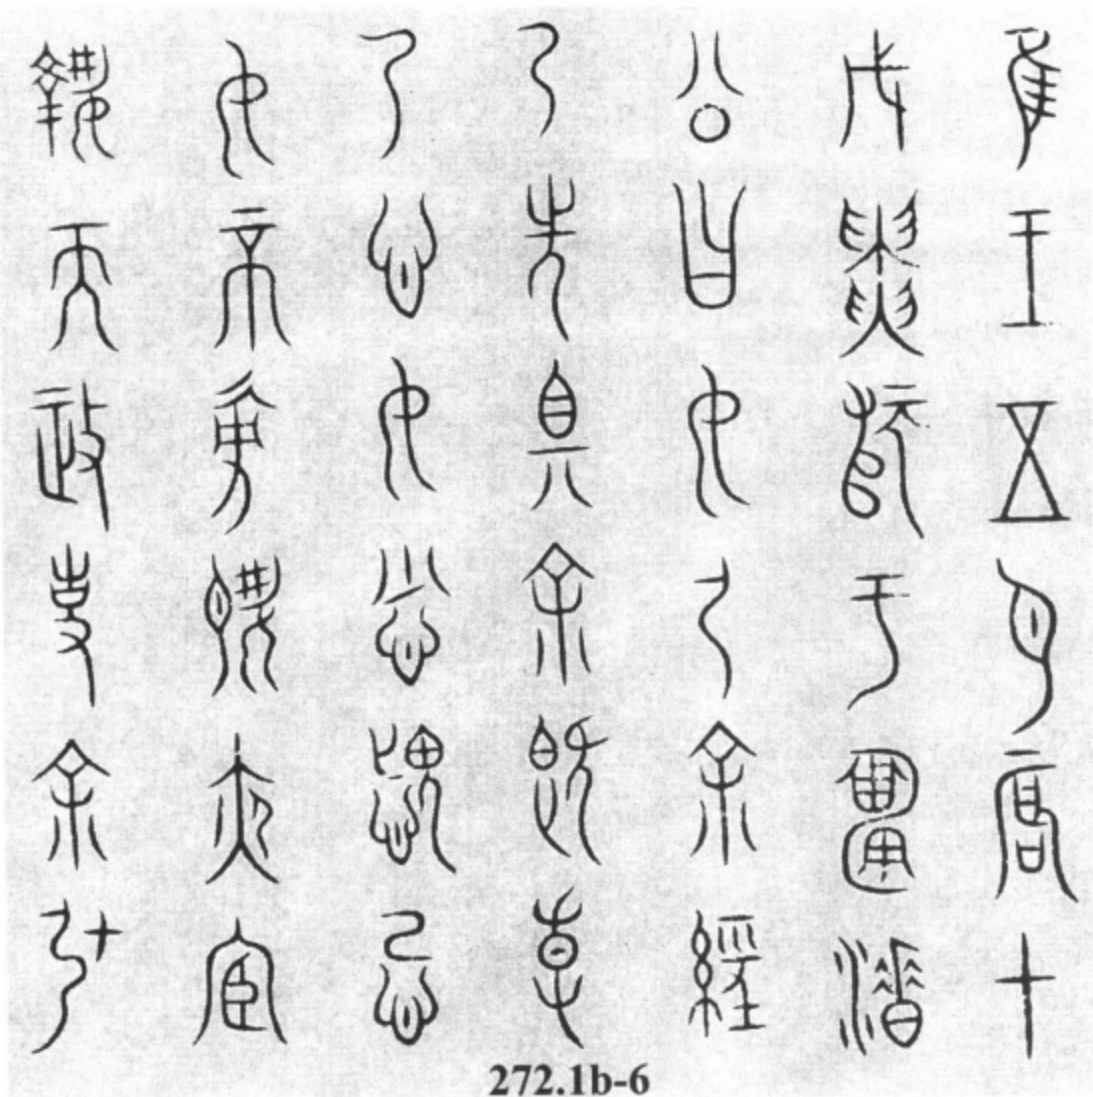 隹王五月辰才
戊寅師于淄涶
公曰女尸余經
乃先且余既尃
乃心女小心愄忌
女不㒸夙夜宦
執而政事余弘
272.1b-6